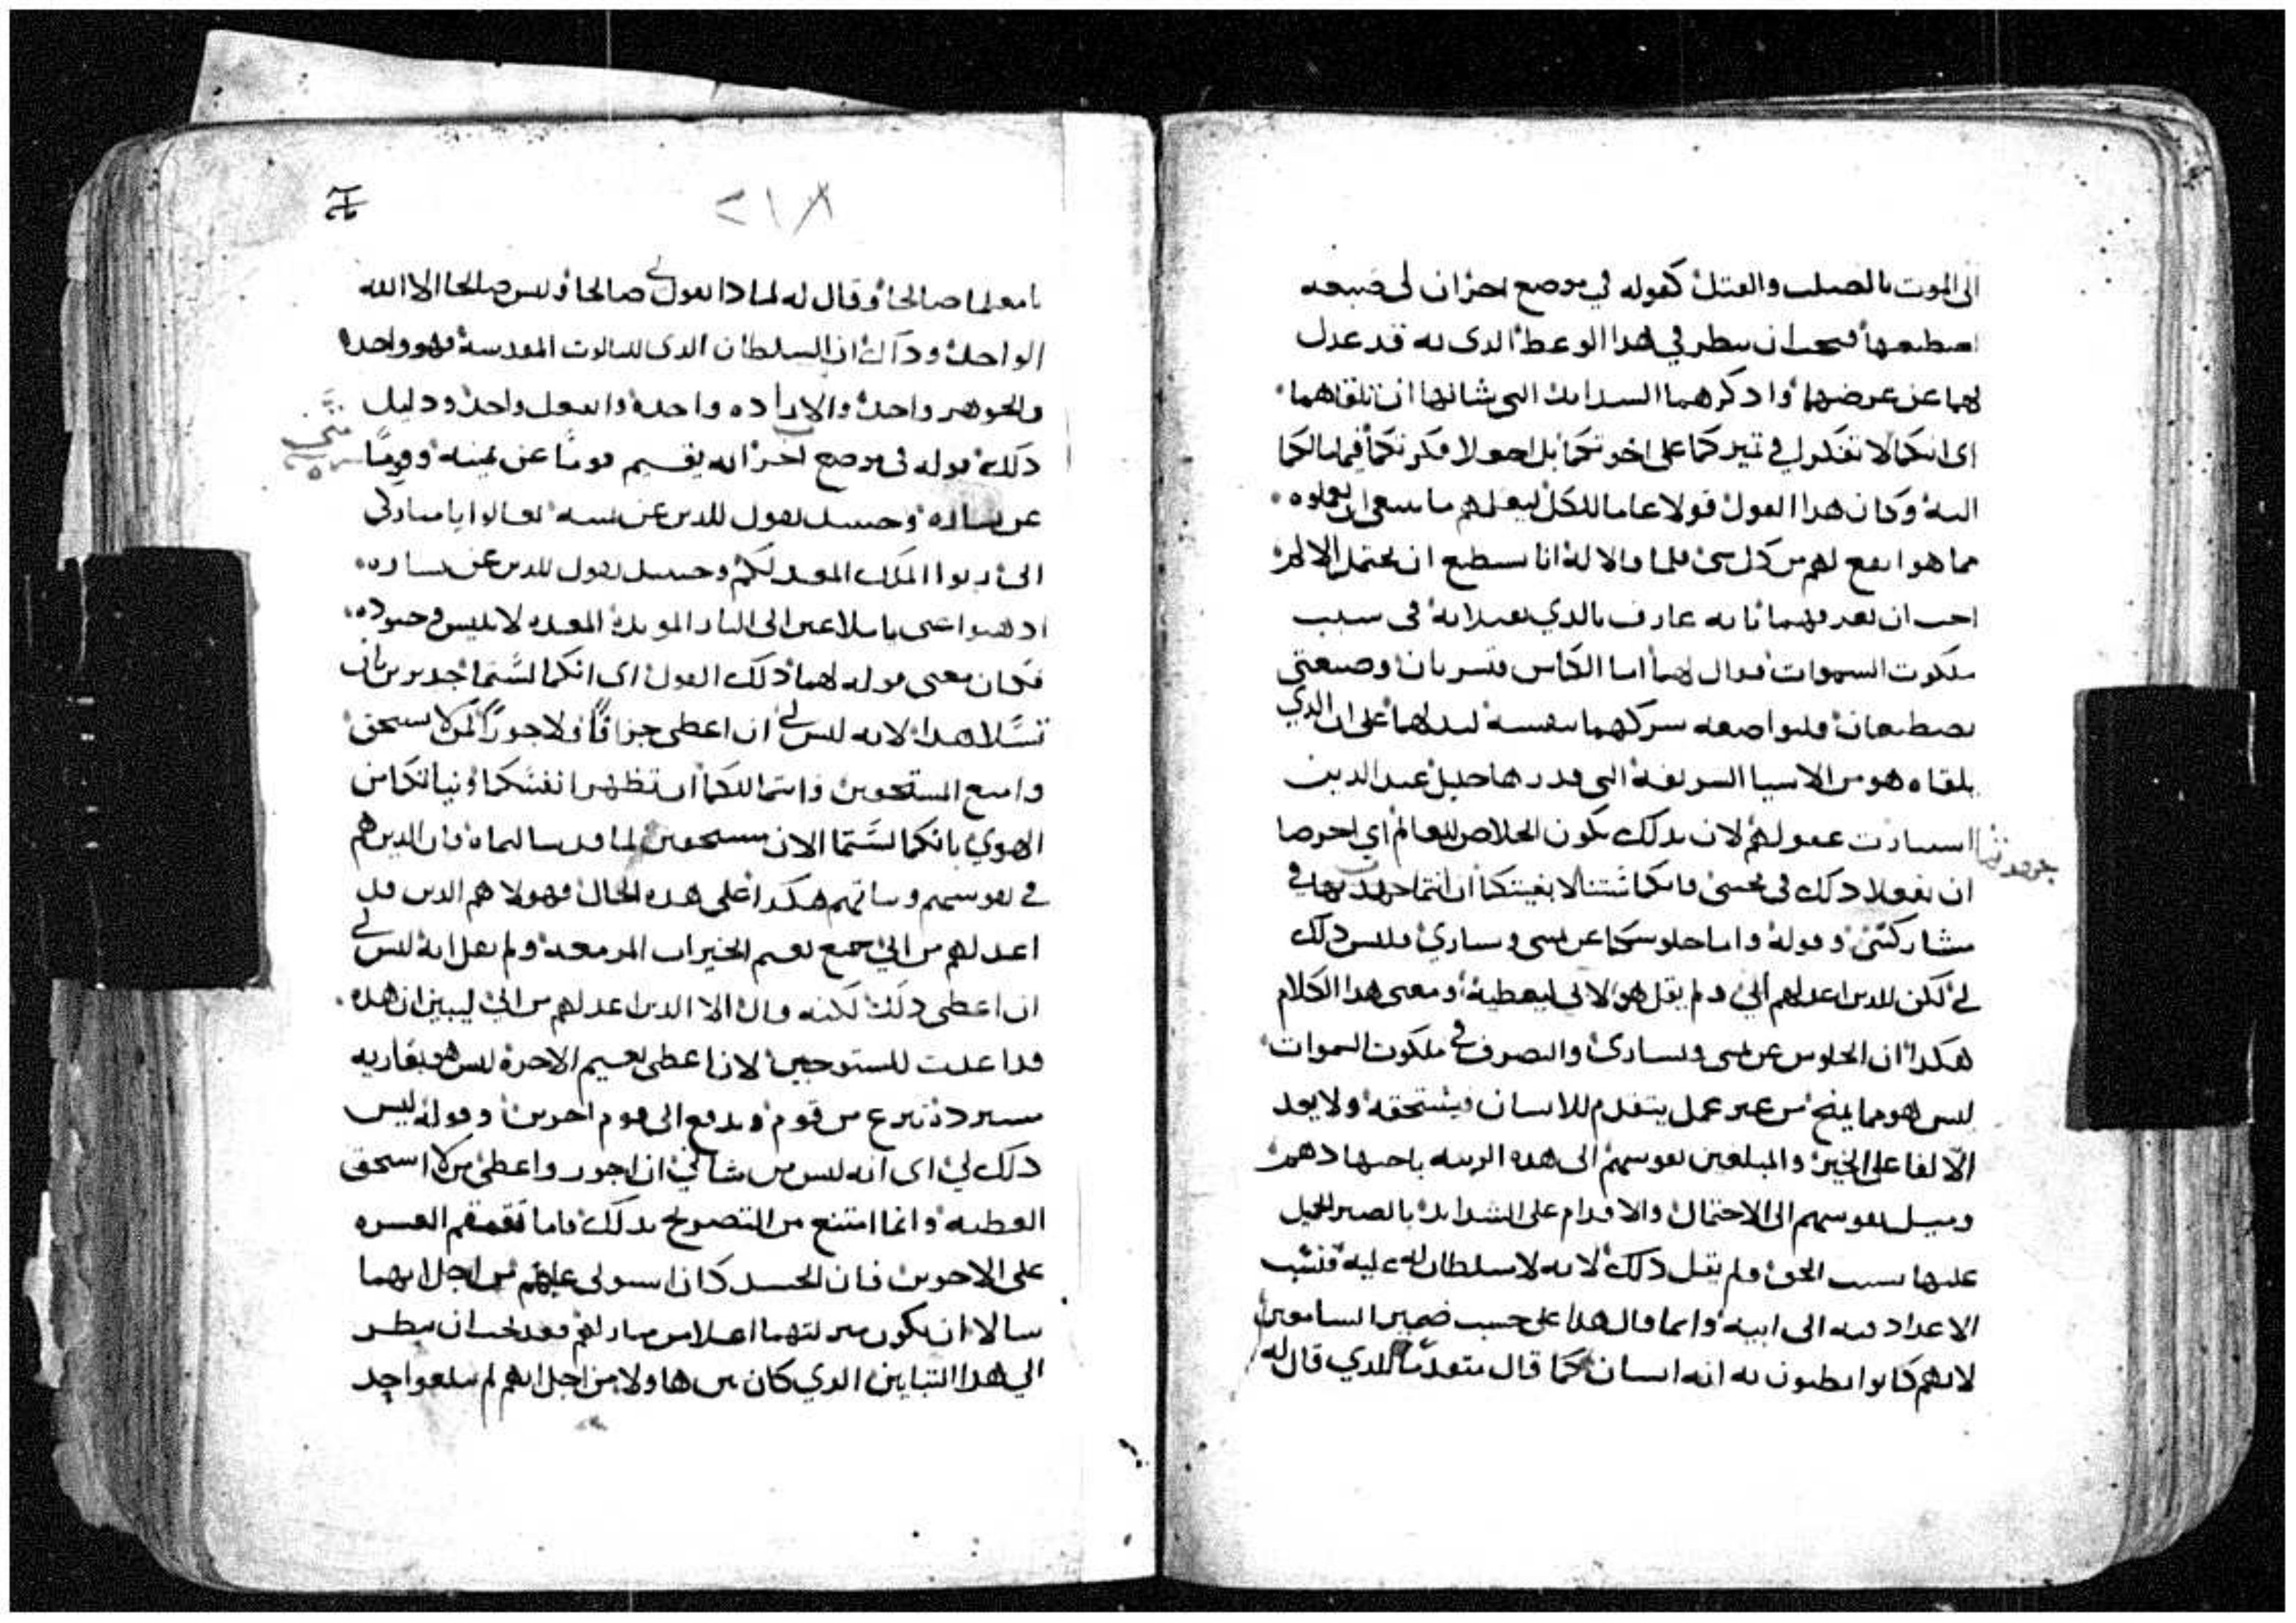 الى الموت بالصلب والقتل كقوله في موضع اخر ان لي صبغه
اصطبغها فيجب ان ينظر في هدا الوعظ الدى به قد عدل
لهما عن غرضهما وادكرهما السدايد التي شانها ان تلقاهما
اى انكما لا تفكرا في تميزكما على اخوتكما بل اجعلا فكرتكما فيما لكما
اليه وكان هدا القول قولا عاما للكل ليعلمهم ما ينبغى ان يعملوه
مما هو انفع لهم من كل شى فلما قالا له انا نستطيع ان نحتمل الالام
احب ان يعرفهما بانه عارف بالدي يقبلانه فى سبب
ملكوت السموات فقال لهما اما الكاس فتسربان وصبغتي
تصطبغان فلتواضعه سركهما بنفسه ليدلهما على ان الدي
يلقاه هو من الاسيا السريفه التى قدرها جليل عند الدين
استنارت عقولهم لان بدلك يكون الخلاص للعالم اي احرصا
ان تفعلا دلك في محبتى فانكما شئتما لا بغيتكما ان انتما جهدتما في
مشاركتى وقوله واما جلوسكما عن يمينى ويساري فليس دلك
لي لكن للدين اعد لهم ابي ولم يقل هو لابى ليعطيه ومعنى هدا الكلام
هكدا ان الجلوس عن يمينى ويسارى والتصرف في ملكوت السموات
ليس هو مما يمنح من غير عمل يتقدم للانسان فيستحقه ولا يعد
الا لفاعلي الخير والمبلغين نفوسهم الى هده الرتبه باجتهادهم
وميل نفوسهم الى الاحتمال والاقدام على الشدايد بالصبر الجميل
عليها بسبب الحق ولم يقل دلك لانه لا سلطان له عليه فنسب
الاعداد فيه الى ابيه وانما قال هدا على حسب ضمير السامعين
لانهم كانوا يظنون به انه انسان كما قال متقدما للدي قال له
٢١٨
يا معلما صالحا وقال له لمادا تقول لي صالحا وليس صالحا الا الله
الواحد ودلك ان السلطان الدى للتالوت المقدسه فهو واحد
والجوهر واحد والاراده واحده والقول واحد ودليل
دلك قوله فى موضع اخر انه يقسم قوما عن يمينه وقوما
عن يساره وحينيد يقول للدين عن يمينه تعالوا يا مباركى
ابى رتوا الملك المعد لكم وحينيد يقول للدين عن يساره
ادهبوا عنى يا ملاعين الى النار الموبده المعده لابليس وجنوده
فكان معنى قوله لهما دلك القول اى انكما لستما جديرين بان
تسلا هدا لانه ليس لي ان اعطى جزافا ولا جورا لمن لا يستحق
وامنع المستحقين وانتما لكما ان تطهرا نفسكما ونياتكما من
الهوي بانكما لستما الان مستحقين لما قد سالتماه فان الدين هم
في نفوسهم ونياتهم هكدا على هده الحال فهولا هم الدين قد
اعد لهم من ابي جميع نعيم الخيرات المزمعه ولم يقل انه ليس لي
ان اعطى دلك لكنه قال الا الدين اعد لهم من ابي ليبين ان هده
قد اعدت للمستوجبين لان اعطى نعيم الاخره ليس هو بقاريه
تسترد تنزع من قوم وتدفع الى قوم اخرين وقوله ليس
دلك لي اى انه ليس من شانى ان اجور واعطى من لا استحق
العطيه وانما امتنع من التصريح بدلك فاما تقمقم العسره
على الاخوين فان الحسد كان استولى عليهم من اجل انهما
سالا ان يكون منزلتهما اعلا من منازلهم فقد يجب ان ينظر
الي هدا التباين الدي كان بين هاولا من اجل انهم لم يبلغوا حد